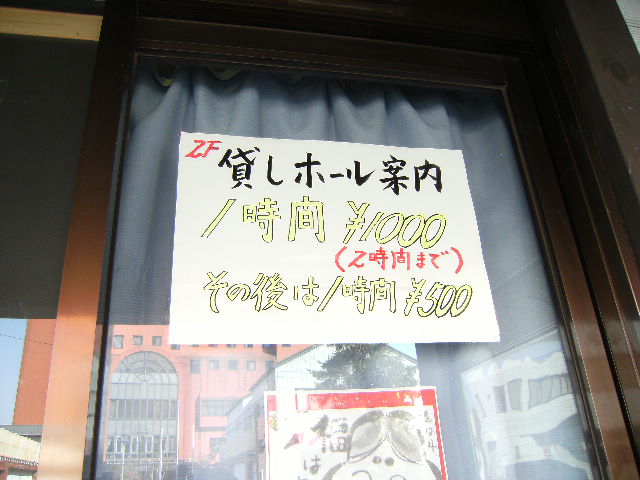 2F 貸しホール案内
1時間 ¥1000
(2時間まで)
その後は1時間 ¥500
福は